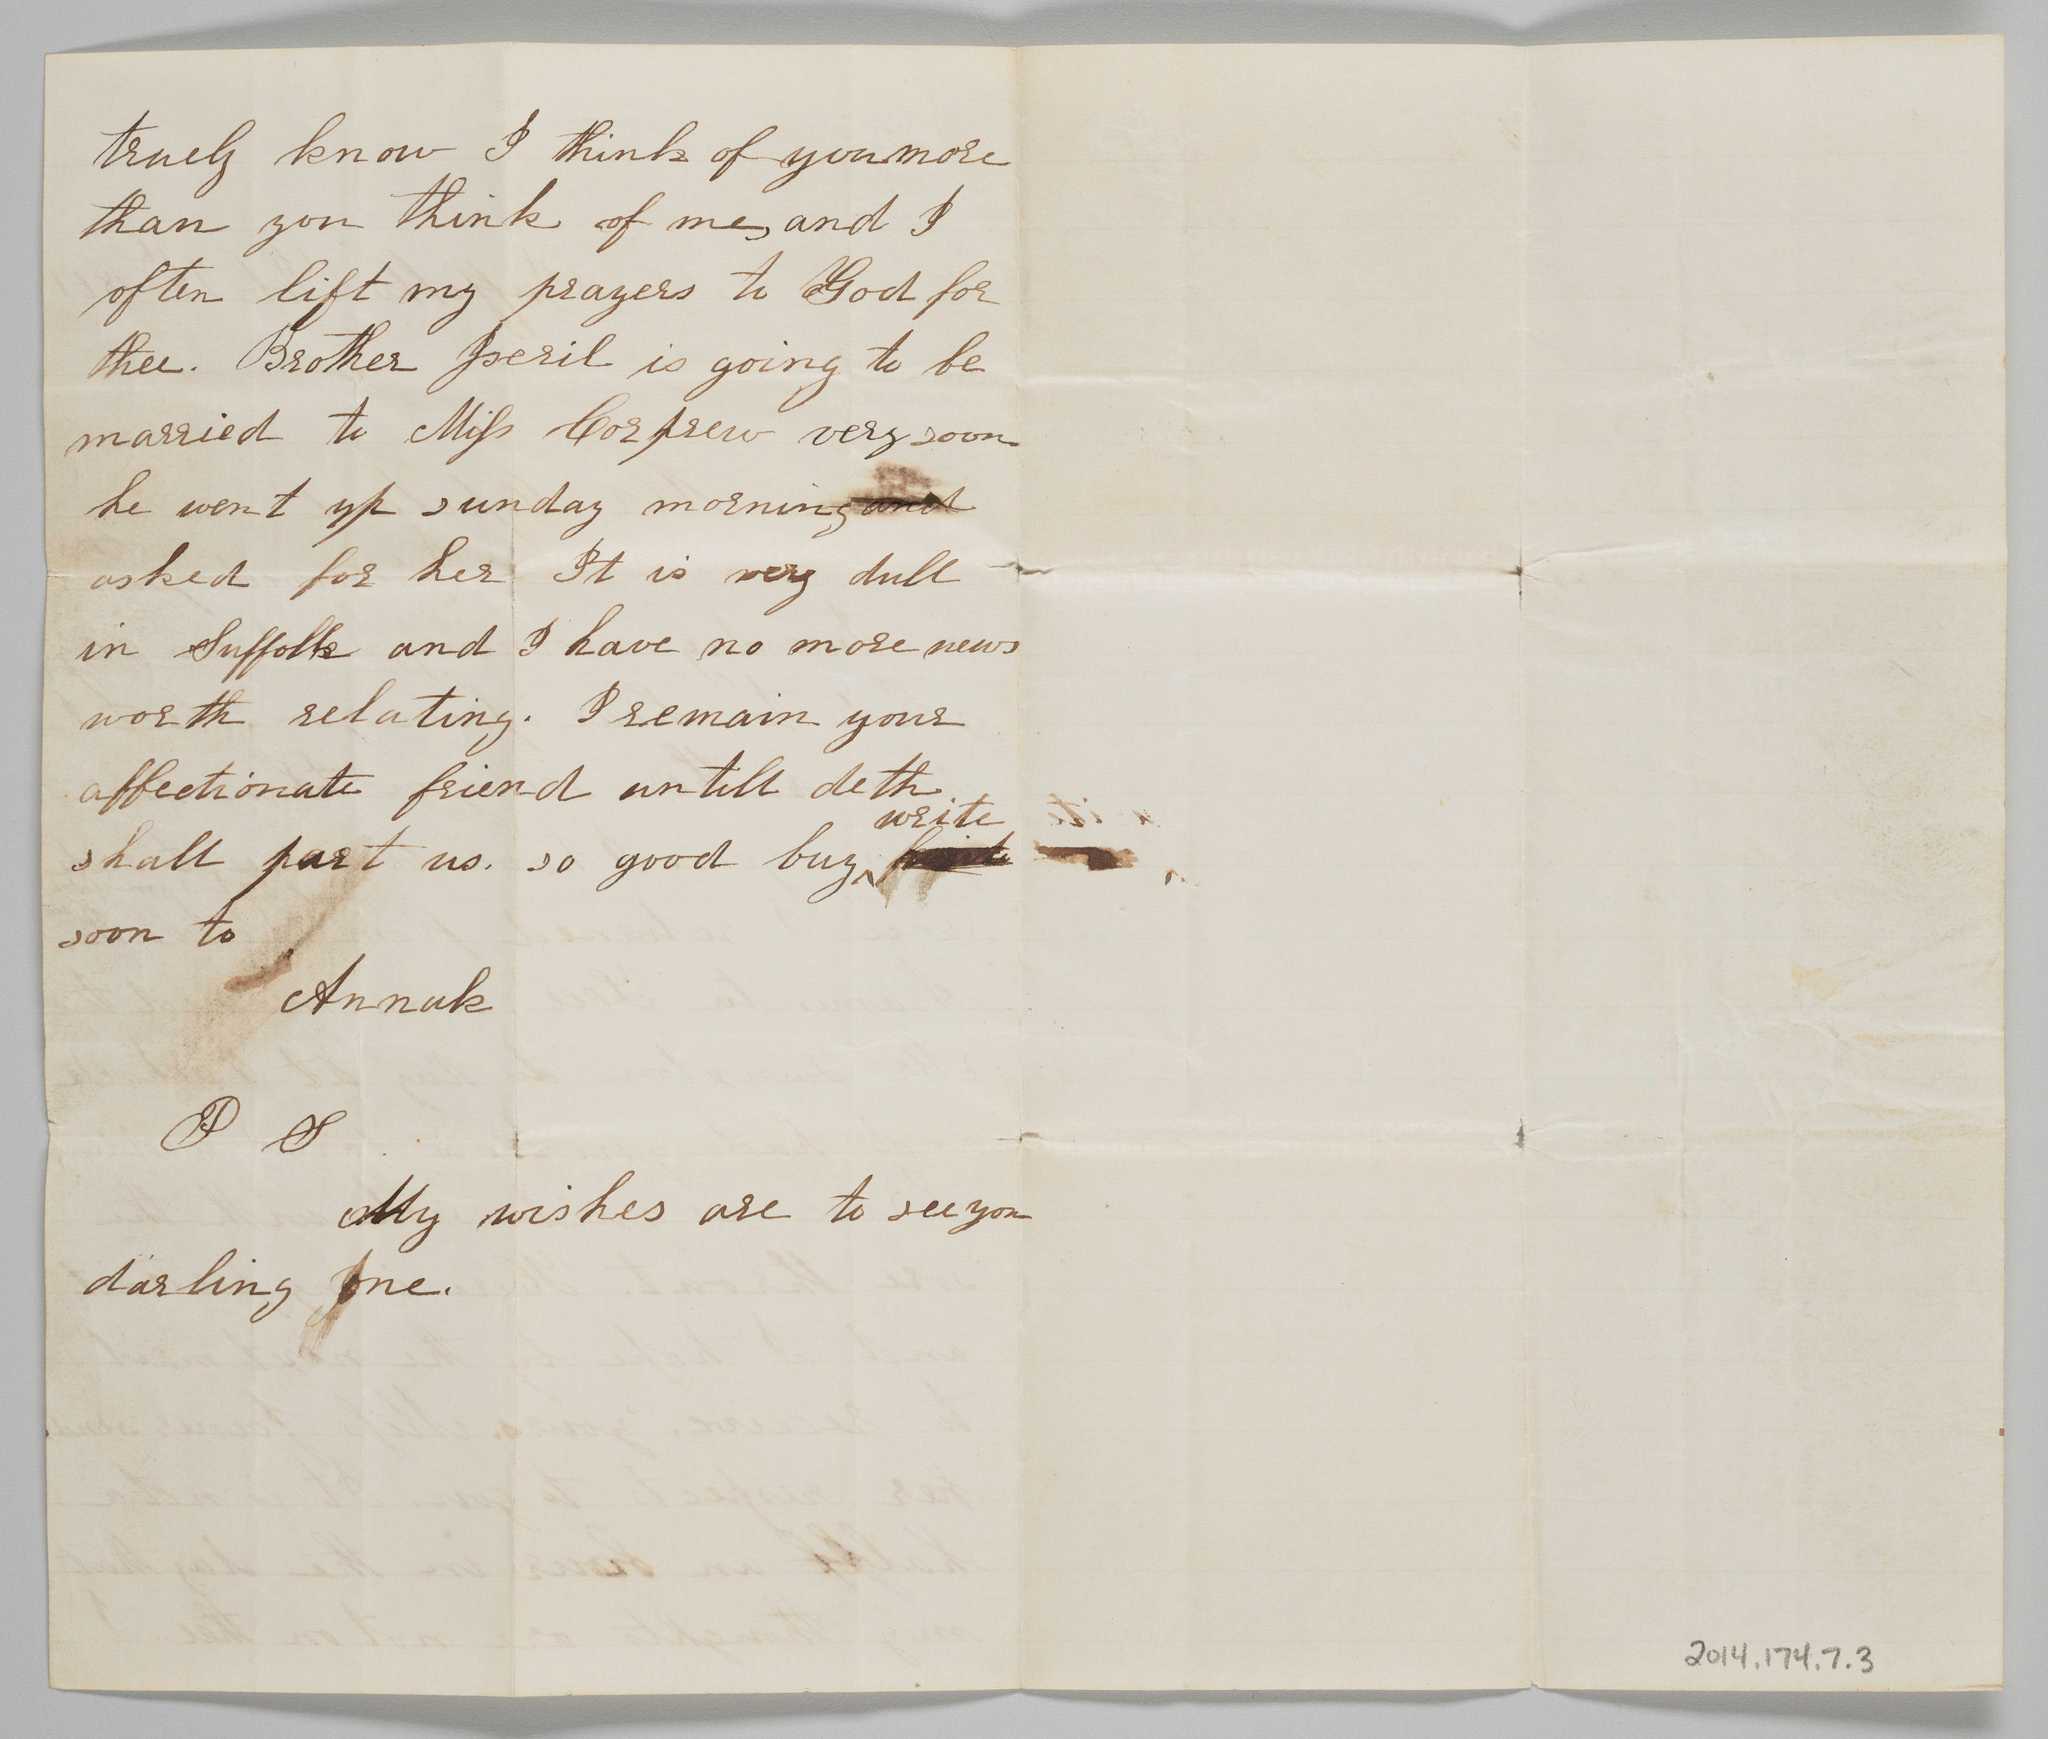 truely know I think of you more
than you think of me, and I
often lift my prayers to God for
thee. Brother Iseril is going to be
married to Miss Corprew very soon
he went up sunday morning and
asked for her It is very dull
in Suffolk and I have no more news
worth relating. I remain your
affectionate friend untill deth
write
shall part us. so good buy ^
soon to
Annak
P S
My wishes are to see you
darling one.
2014.174.7.3